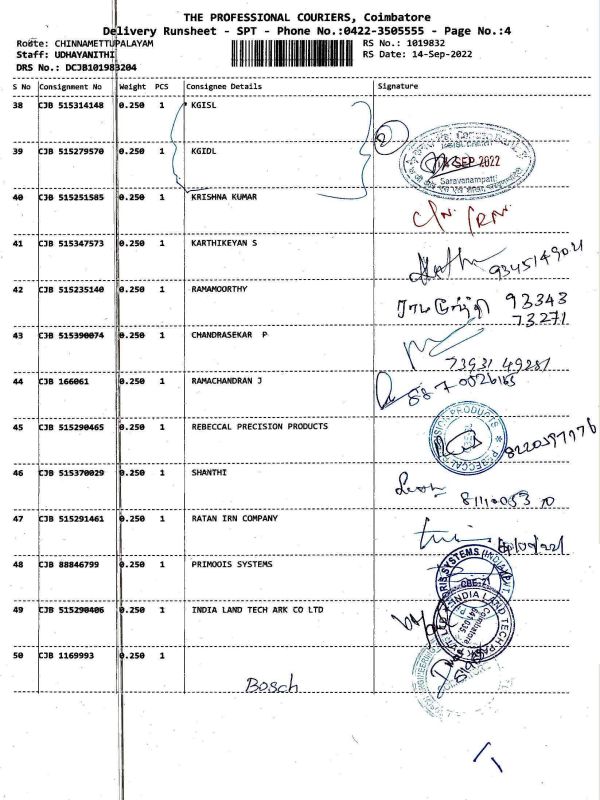 THE PROFESSIONAL COURIERS, Coimbatore
Delivery Runsheet - SPT - Phone No.:0422-3505555 - Page No.:4
Route: CHINNAMETTUPALAYAM RS No.: 1019832
Staff: UDHAYANITHI RS Date: 14-Sep-2022
DRS No.: DCJB101983204
S No Consignment No Weight PCS Consignee Details Signature
38 CJB 515314148 0.250 1 KGISL
2
39 CJB 515279570 0.250 1 KGIDL
SEP 2022
Saravanampatti
40 CJB 515251585 0.250 1 KRISHNA KUMAR
41 CJB 515347573 0.250 1 KARTHIKEYAN S
9345149021
42 CJB 515235140 0.250 1 RAMAMOORTHY
ராமமூர்த்தி 93343
73271
43 CJB 515390074 0.250 1 CHANDRASEKAR P
73931 49281
44 CJB 166061 0.250 1 RAMACHANDRAN J
45 CJB 515290465 0.250 1 REBECCAL PRECISION PRODUCTS
REBECCAL PRECISION PRODUCTS
46 CJB 515370029 0.250 1 SHANTHI
47 CJB 515291461 0.250 1 RATAN IRN COMPANY
48 CJB 88846799 0.250 1 PRIMOOIS SYSTEMS
49 CJB 515290406 0.250 1 INDIA LAND TECH ARK CO LTD
INDIA LAND TECH PARK
Coimbatore
50 CJB 1169993 0.250 1
Bosch